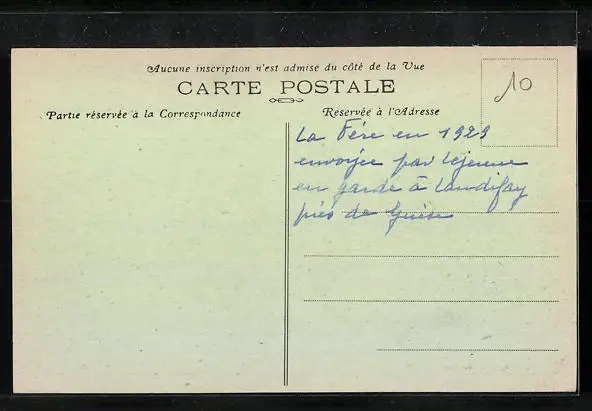 Aucune inscription n'est admise du côté de la Vue
CARTE POSTALE
Partie réservée à la Correspondance
Reservée à l'Adresse
10
La Fére en 1929
envoyée par Lejeune
en garde à Landifay
près de Guise